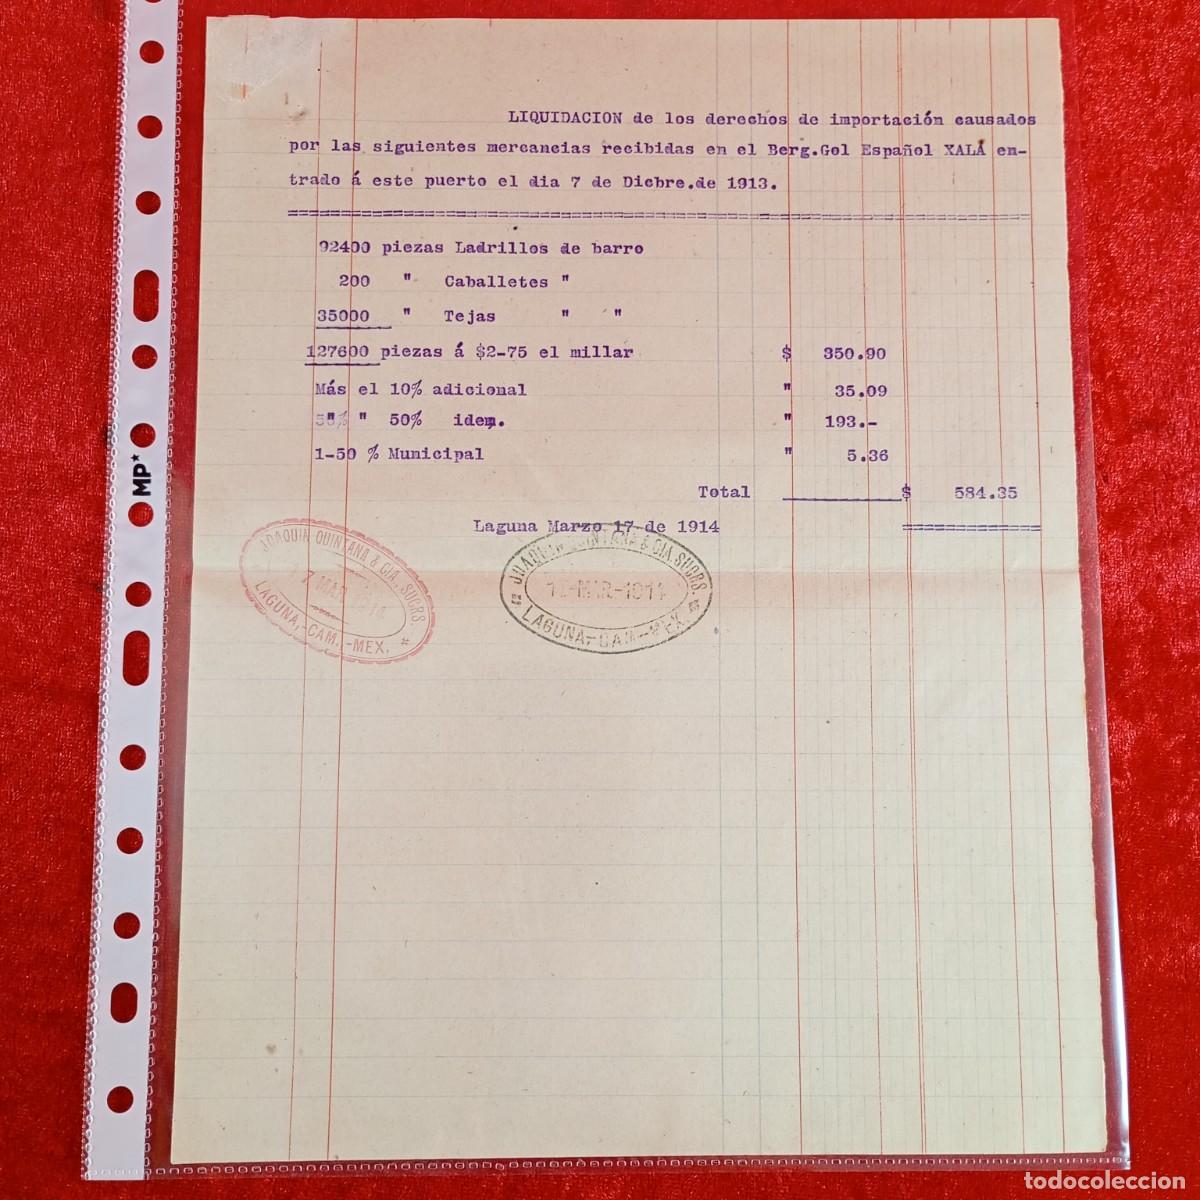 LIQUIDACION de los derechos de importación causados
por las siguientes mercancias recibidas en el Berg.Gol Español XALÁ en-
trado á este puerto el dia 7 de Dicbre.de 1913.
92400 piezas Ladrillos de barro
200 " Caballetes "
35000 " Tejas " "
127600 piezas á $2-75 el millar $ 350.90
Más el 10% adicional " 35.09
" " 50% idem. " 193.-
1-50 % Municipal " 5.36
Total $ 584.35
Laguna Marzo 17 de 1914
JOAQUIN QUINTANA & CIA. SUCRS.
7 MAR 1914
LAGUNA, CAM.-MEX.
JOAQUIN QUINTANA & CIA. SUCRS.
MAR-1914
LAGUNA,-CAM-MEX.
MP*
todocoleccion